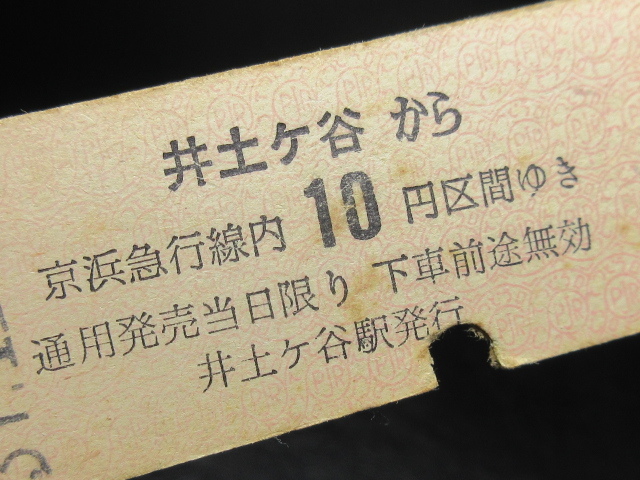 井土ケ谷から
京浜急行線内 10 円区間ゆき
通用発売当日限り 下車前途無効
井土ケ谷駅発行